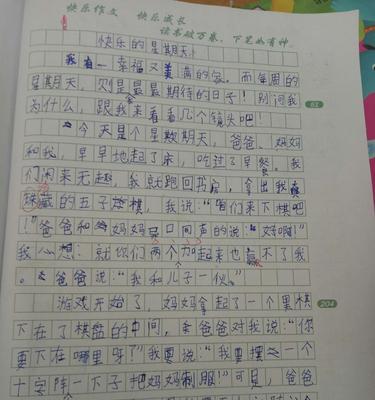 快乐作文 快乐成长
读书破万卷,下笔如有神
快乐的星期天
我有一幸福又美满的家。而每周的
星期天,则是最最期待的日子!别问我
为什么,跟我来看看几个镜头吧!
63
今天是个星期天,爸爸、妈妈
和我,早早地起了床,吃过了早餐。我
们闲来无趣,我就跑回书房,拿出我
珠藏的五子棋,我说:“咱们来下棋吧
!”爸爸和妈妈异口同声的说:“好啊!”
我心想:就你们两个加起来也赢不了我
。爸爸说:“我和儿子一伙。”
游戏开始了,妈妈拿起了一个黑棋
204
下在了棋盘的中间,爸爸对我说:“你
要下在哪里呀?”我说:“我要摆一个
十字阵一下子把妈妈制服!”可是,爸爸